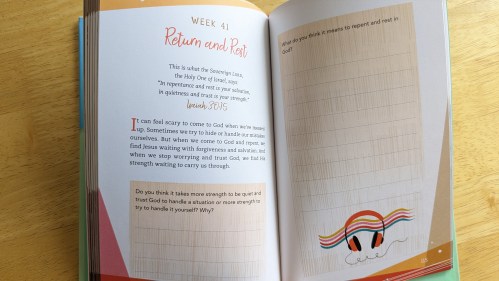 WEEK 41
Return and Rest
This is what the Sovereign LORD,
the Holy One of Israel, says:
"In repentance and rest is your salvation,
in quietness and trust is your strength."
Isaiah 30:15
It can feel scary to come to God when we've messed
up. Sometimes we try to hide or handle our mistakes
ourselves. But when we come to God and repent, we
find Jesus waiting with forgiveness and salvation. And
when we stop worrying and trust God, we find His
strength waiting to carry us through.
Do you think it takes more strength to be quiet and
trust God to handle a situation or more strength to
try to handle it yourself? Why?
What do you think it means to repent and rest in
God?